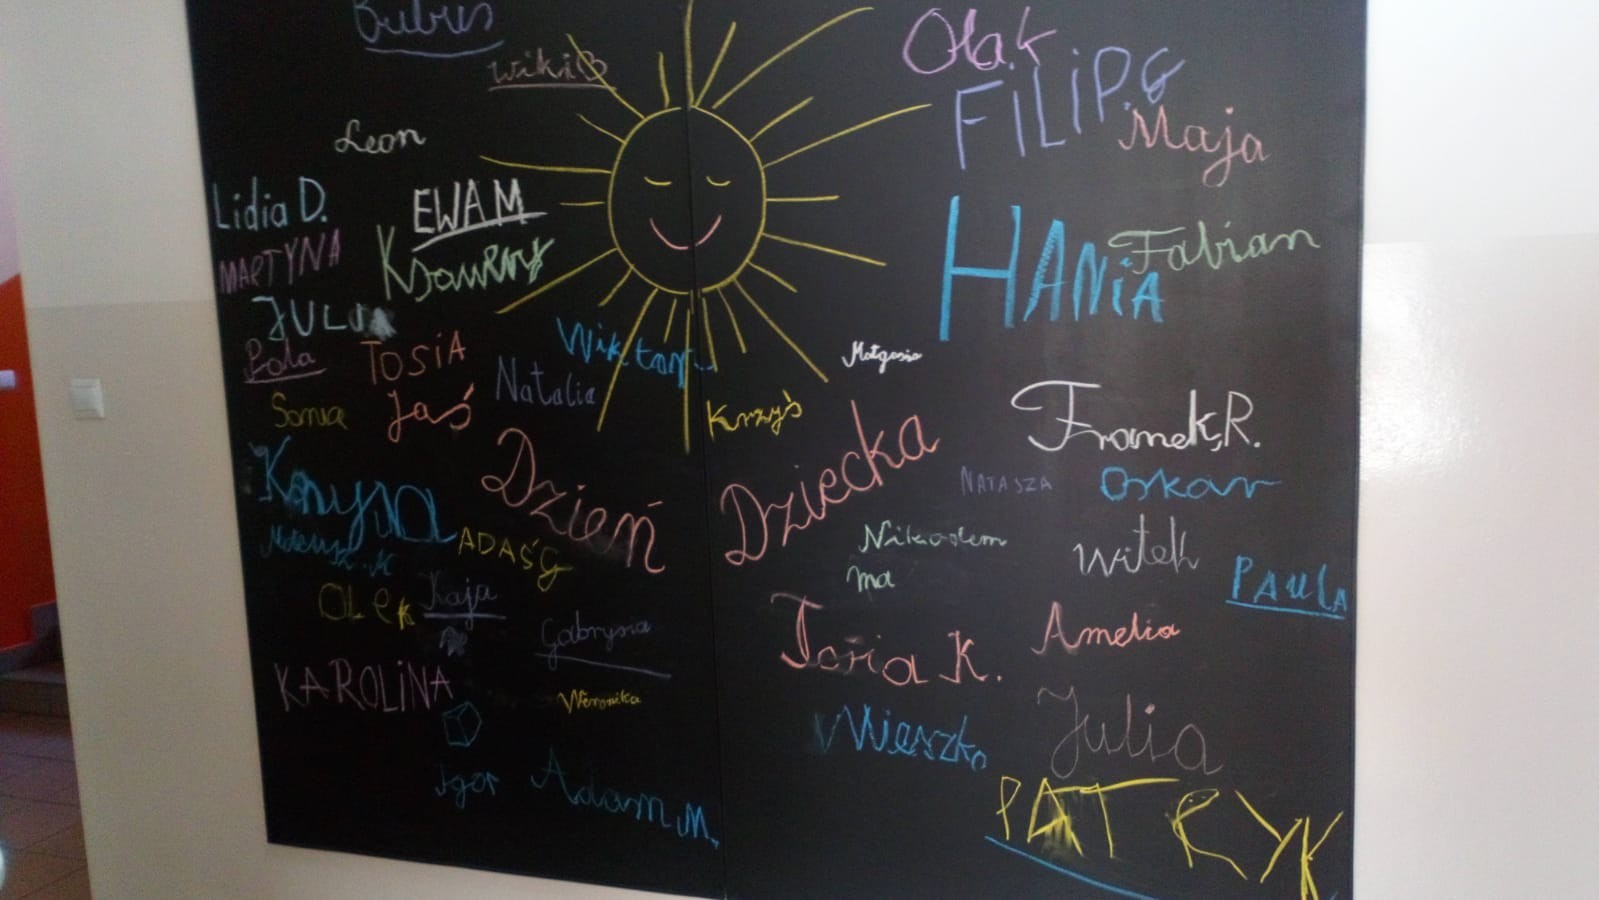 Bubus
wiki
Leon
Lidia D.
EWA M
MARTYNA
Ksawery
JULIA
Pola
TOSIA
Wiktor
Natalia
Sonia
Jaś
Krzyś
Dzień Dziecka
ADAŚ G
OLEK
Kaja
Gabrysia
KAROLINA
Weronika
Igor
Adam M.
Ola.K
FILIP.G
Maja
HANIA
Fabian
Małgosia
Franek,R.
NATASZA
Oskar
Nikodem
ma
Witek
PAULA
Tosia K.
Amelia
Mieszko
Julia
PATRYK